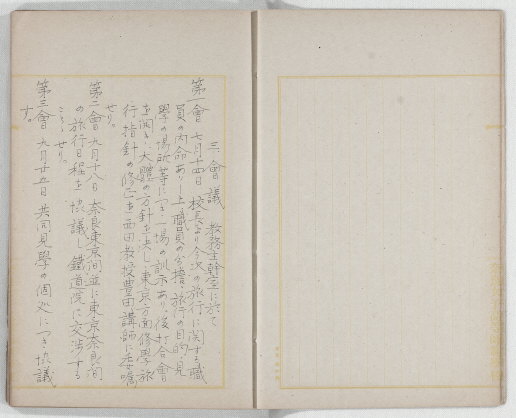 三、會議 教務主幹室に於て
第一會 七月十四日 校長より今次の旅行に関する職
員の内命あり、上職員の分擔旅行の目的、見
學の場所等につき一場の訓示あり、後打合會
を開き、大體の方針を決し、東京方面修學旅
行指針の修正を西田教授豊田講師に委嘱
せり。
第二會 九月十八日 奈良東京間並に東京奈良間
の旅行日程を協議し鐵道院に交渉する
こととせり。
第三會 九月廿五日 共同見學の個処につき協議
す。